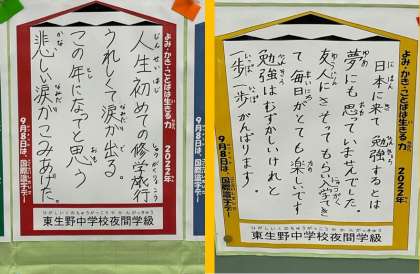 よみ・かき・ことばは生きる力 2022年
9月8日は、国際識字デー
人生初めての修学旅行
うれしくて涙が出る。
この年になってと思う
悲しい涙がこみあげた。
東生野中学校夜間学級
よみ・かき・ことばは生きる力 2022年
9月8日は、国際識字デー
日本に来て勉強するとは
夢にも思っていませんでした。
友人にさそってもらい入学でき
て毎日がとても楽しいです
勉強はむずかしいけれど
一歩一歩がんばります。
東生野中学校夜間学級
9月8日は、国際識字デー